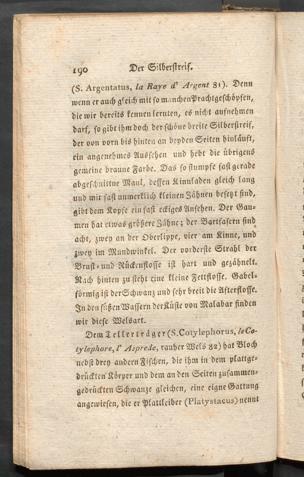 190 Der Silberstreif.
(S. Argentatus, la Raye d' Argent 81). Denn
wenn er auch gleich mit so manchen Prachtgeschöpfen,
die wir bereits kennen lernten, es nicht aufnehmen
darf, so gibt ihm doch der schöne breite Silberstreif,
der von vorn bis hinten an beyden Seiten hinläuft,
ein angenehmes Aussehen und hebt die übrigens
gemeine braune Farbe. Das so stumpfe fast gerade
abgeschnittne Maul, dessen Kinnladen gleich lang
und mit fast unmerklich kleinen Zähnen besetzt sind,
gibt dem Kopfe ein fast eckiges Ansehen. Der Gau-
men hat etwas größere Zähne; der Bartfasern sind
acht, zwey an der Oberlippe, vier am Kinne, und
zwey im Mundwinkel. Der vorderste Strahl der
Brust- und Rückenflosse ist hart und gezähnelt.
Nach hinten zu steht eine kleine Fettflosse. Gabel-
förmig ist der Schwanz und sehr breit die Afterflosse.
In den süßen Wassern der Küste von Malabar finden
wir diese Welsart.
Dem Tellerträger (S. Cotylephorus, le Co-
tylephore, l' Asprede, rauher Wels 82) hat Bloch
nebst drey andern Fischen, die ihm in dem plattge-
drückten Körper und dem an den Seiten zusammen-
gedrückten Schwanze gleichen, eine eigne Gattung
angewiesen, die er Plattleiber (Platystacus) nennt